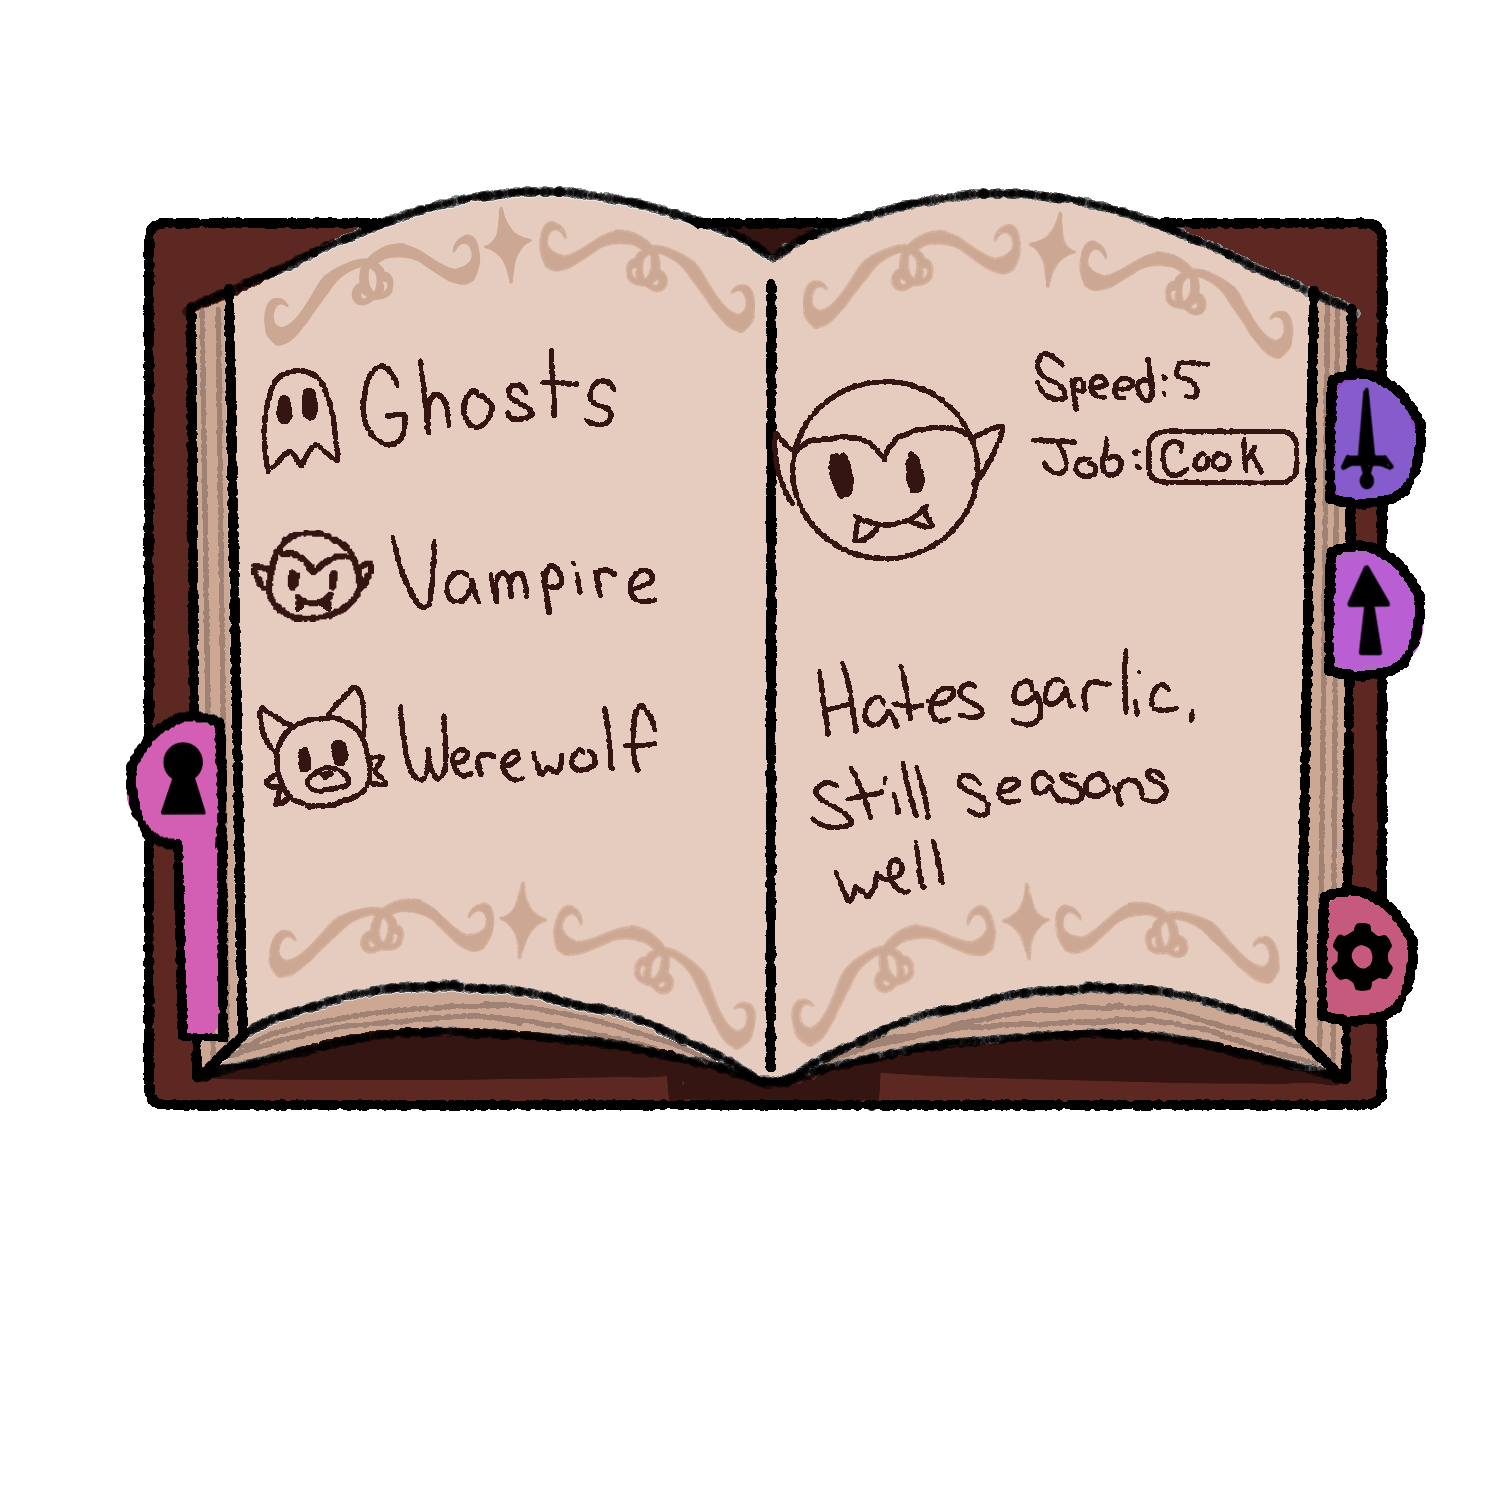 Ghosts
Vampire
Werewolf
Speed:5
Job:Cook
Hates garlic,
Still seasons
well